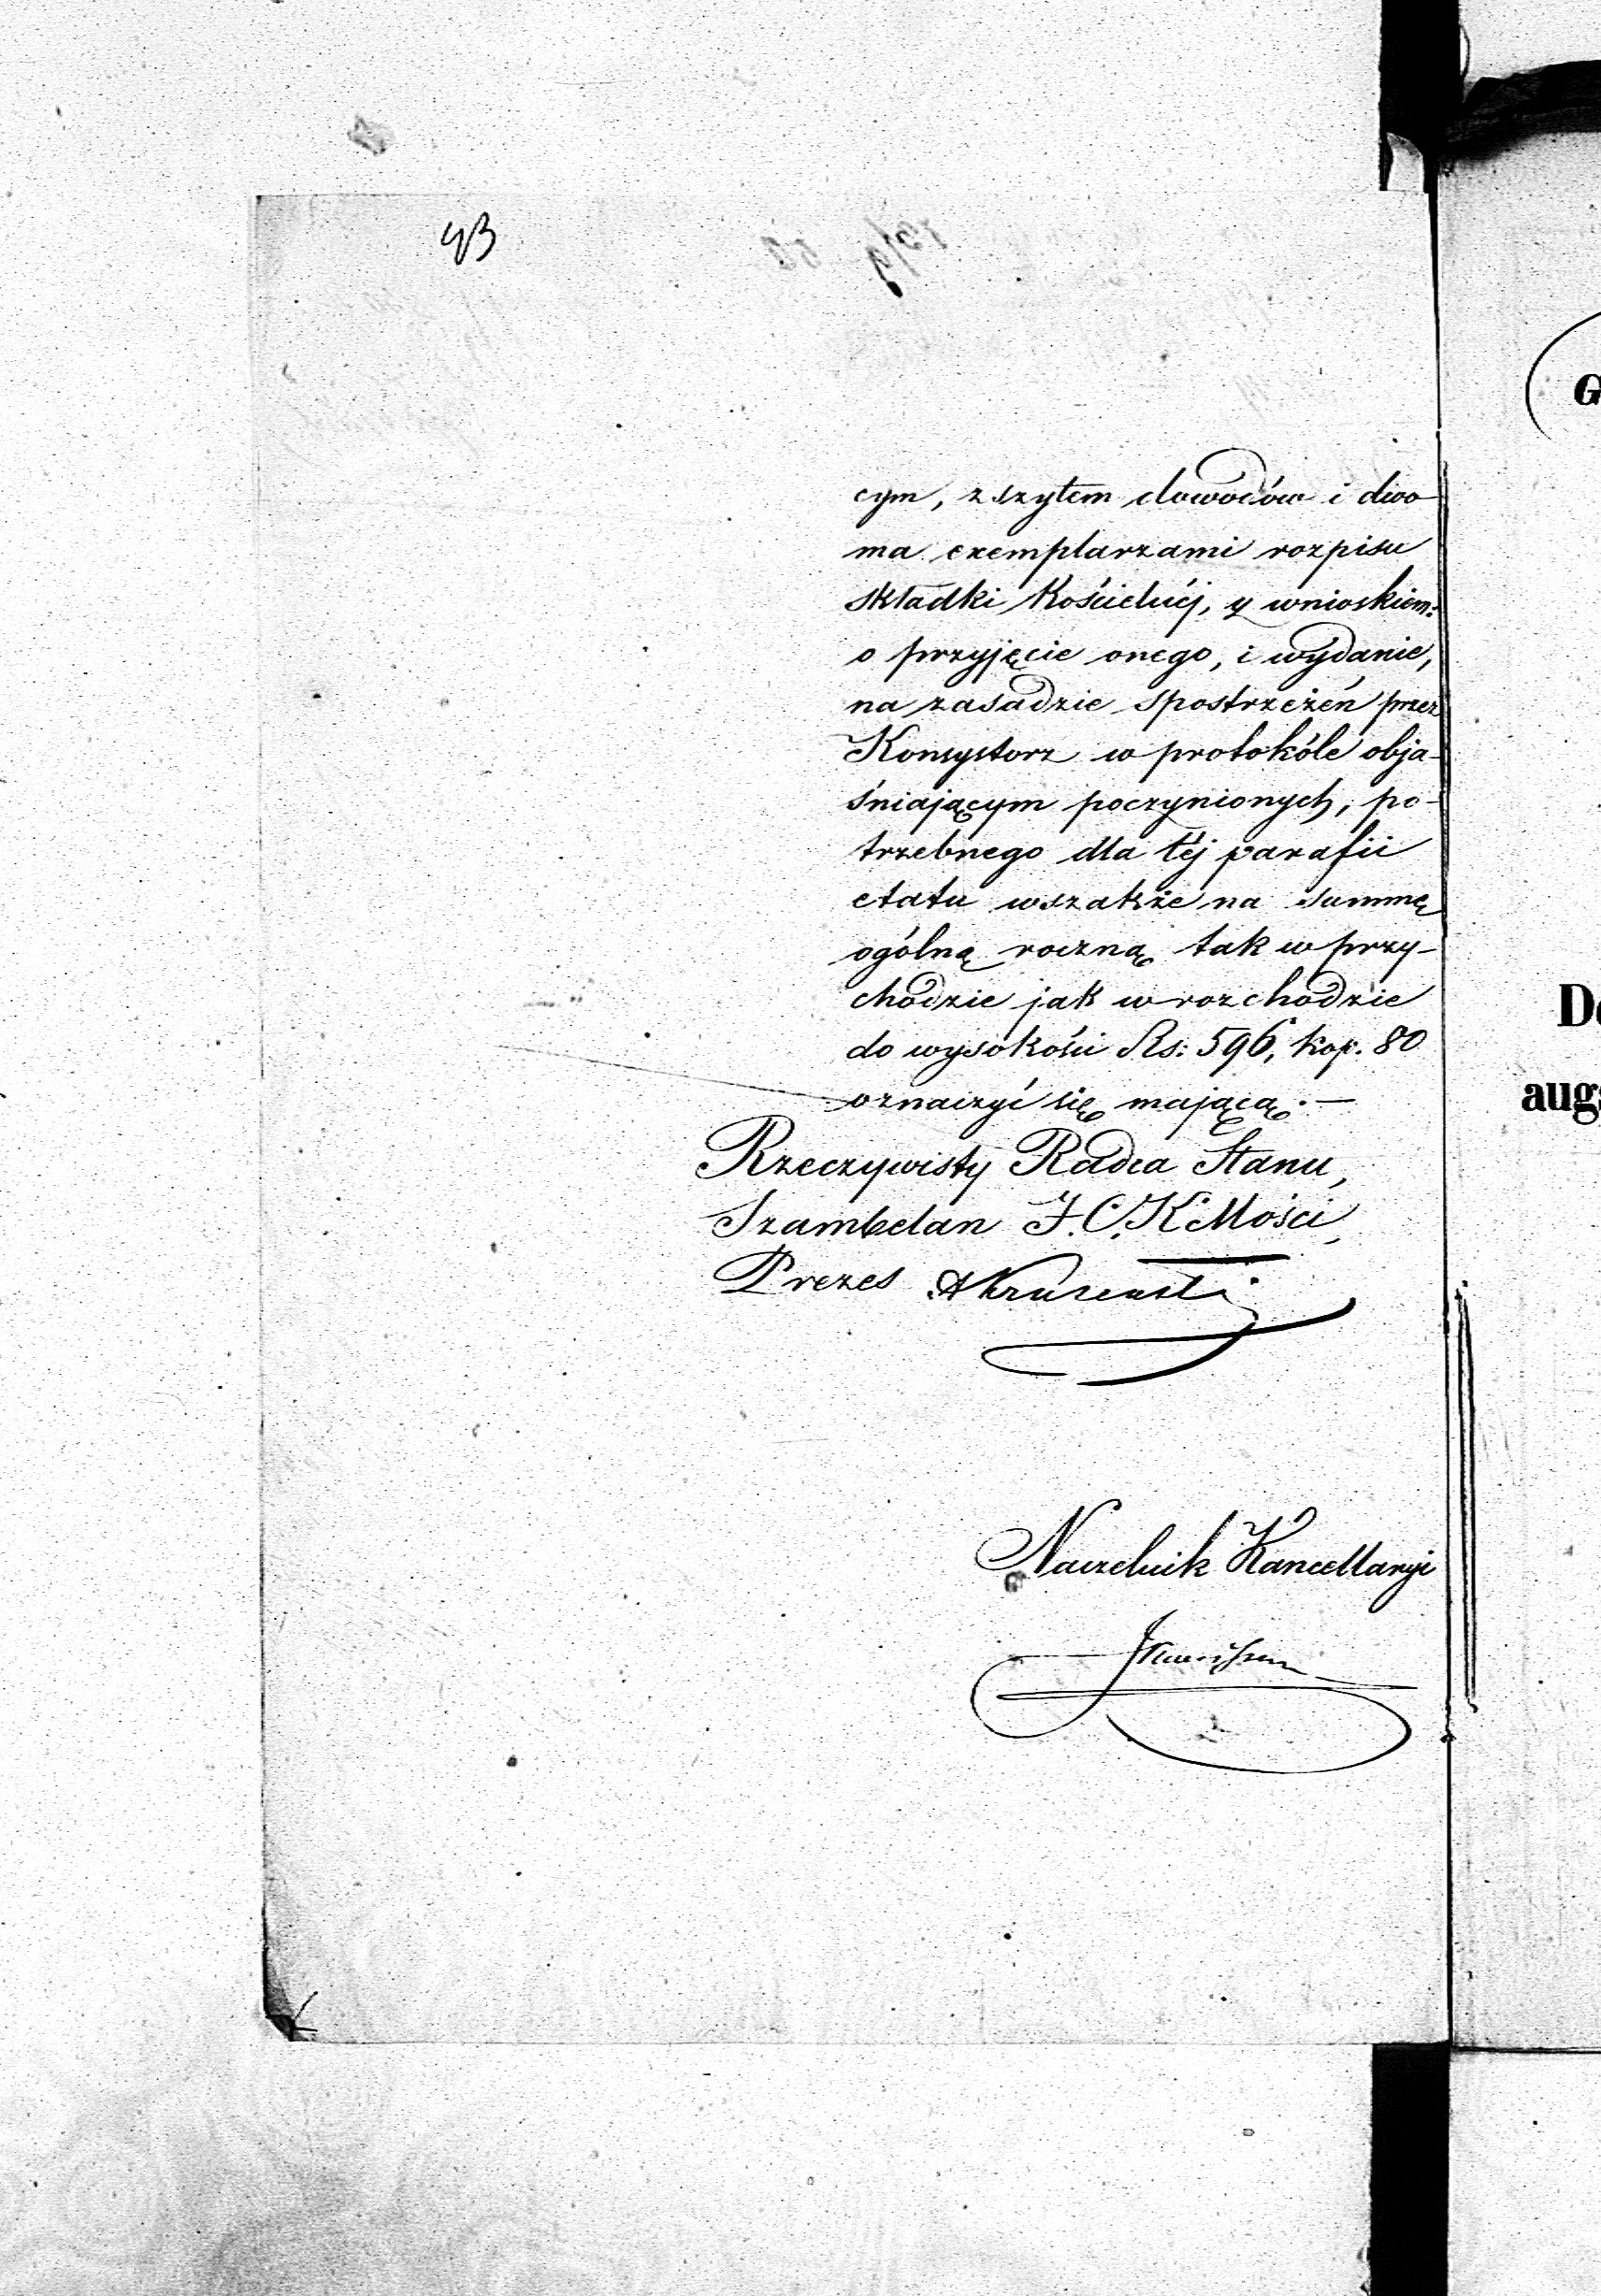 43
cym, zszytem dowodów i dwo
ma exemplarzami rozpisu
składki Kościelnéj, z wnioskiem:
o przyjęcie onego, i wydanie,
na zasadzie spostrzeżeń przez
Konsystorz w protokóle obja-
śniającym poczynionych, po-
trzebnego dla téj parafii
etatu wszakże na summę
ogólną roczną tak w przy-
chodzie jak w rozchodzie
do wysokości Rs: 596, kop. 80
oznaczyć się mającą.—
Rzeczywisty Radca Stanu,
Szambelan J.C.K Mości,
Prezes
Naczelnik Kancellaryi
G
De
augs